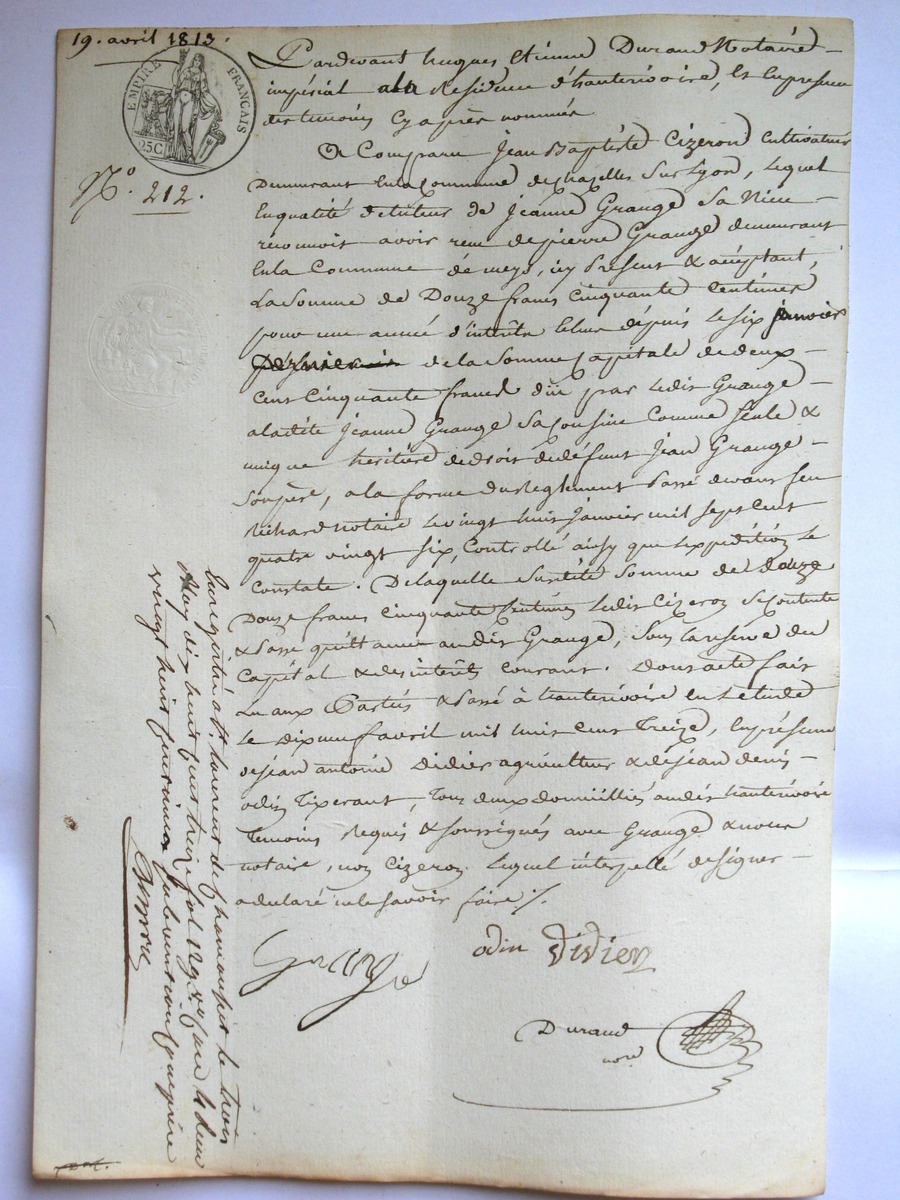 19. avril 1813.
EMPIRE FRANÇAIS
25C
N.º 212.
Pardevant hugues Etienne Durand Notaire
impérial ala Residence d'hauterivoire, Et En presence
des temoins Cy après nommés
A Comparu Jean Baptiste Cizeron Cultivateur
Demeurant En la Commune de chazelles Sur Lyon, Lequel
En qualité de tuteur de Jeanne Grange Sa Niece
reconnoit avoir recu de pierre Grange demeurant
En la Commune de meys, icy Present & acceptant,
La Somme de Douze francs Cinquante Centimes
pour une année d'interêts Echue depuis Le Six janvier
dernier de la Somme Capitale de deux
Cent Cinquante francs düe par Ledit Grange
a ladite Jeanne Grange Sa Cousine Comme Seule &
unique heritière de droit de défunt Jean Grange
Son père, a la forme du Reglement Passé devant feu
Richard Notaire Le vingt huit Janvier mil Sept Cent
quatre vingt Six, Controllé ainsy que L'expédition Le
Constate. De laquelle Susdité Somme de douze
Douze francs Cinquante Centimes Ledit Cizeron Se Contente
& Passe quittance audit Grange, Sous la réserve du
Capital & des interêts Courant. Dont acte fait
Lu aux Parties & Passé à hauterivoire En L'etude
Le Dix neuf avril mil huit Cent Treize, En présence
de Jean antoine Didier agriculteur & de Jean denis
odin Tixerant, Tous deux domicilliés audit hauterivoire
Temoins Requis & Soussignés avec Grange & nous
notaire, non Cizeron. Lequel interpellé de signer
a declaré ne le Savoir faire ./.
Grange
odin Didier
Durand
nore
Enregistré a St Laurent de chamousset le trois
May dix huit cent treize fol. 129 Vo Case 4 Recu
vingt huit centimes subvention comprise